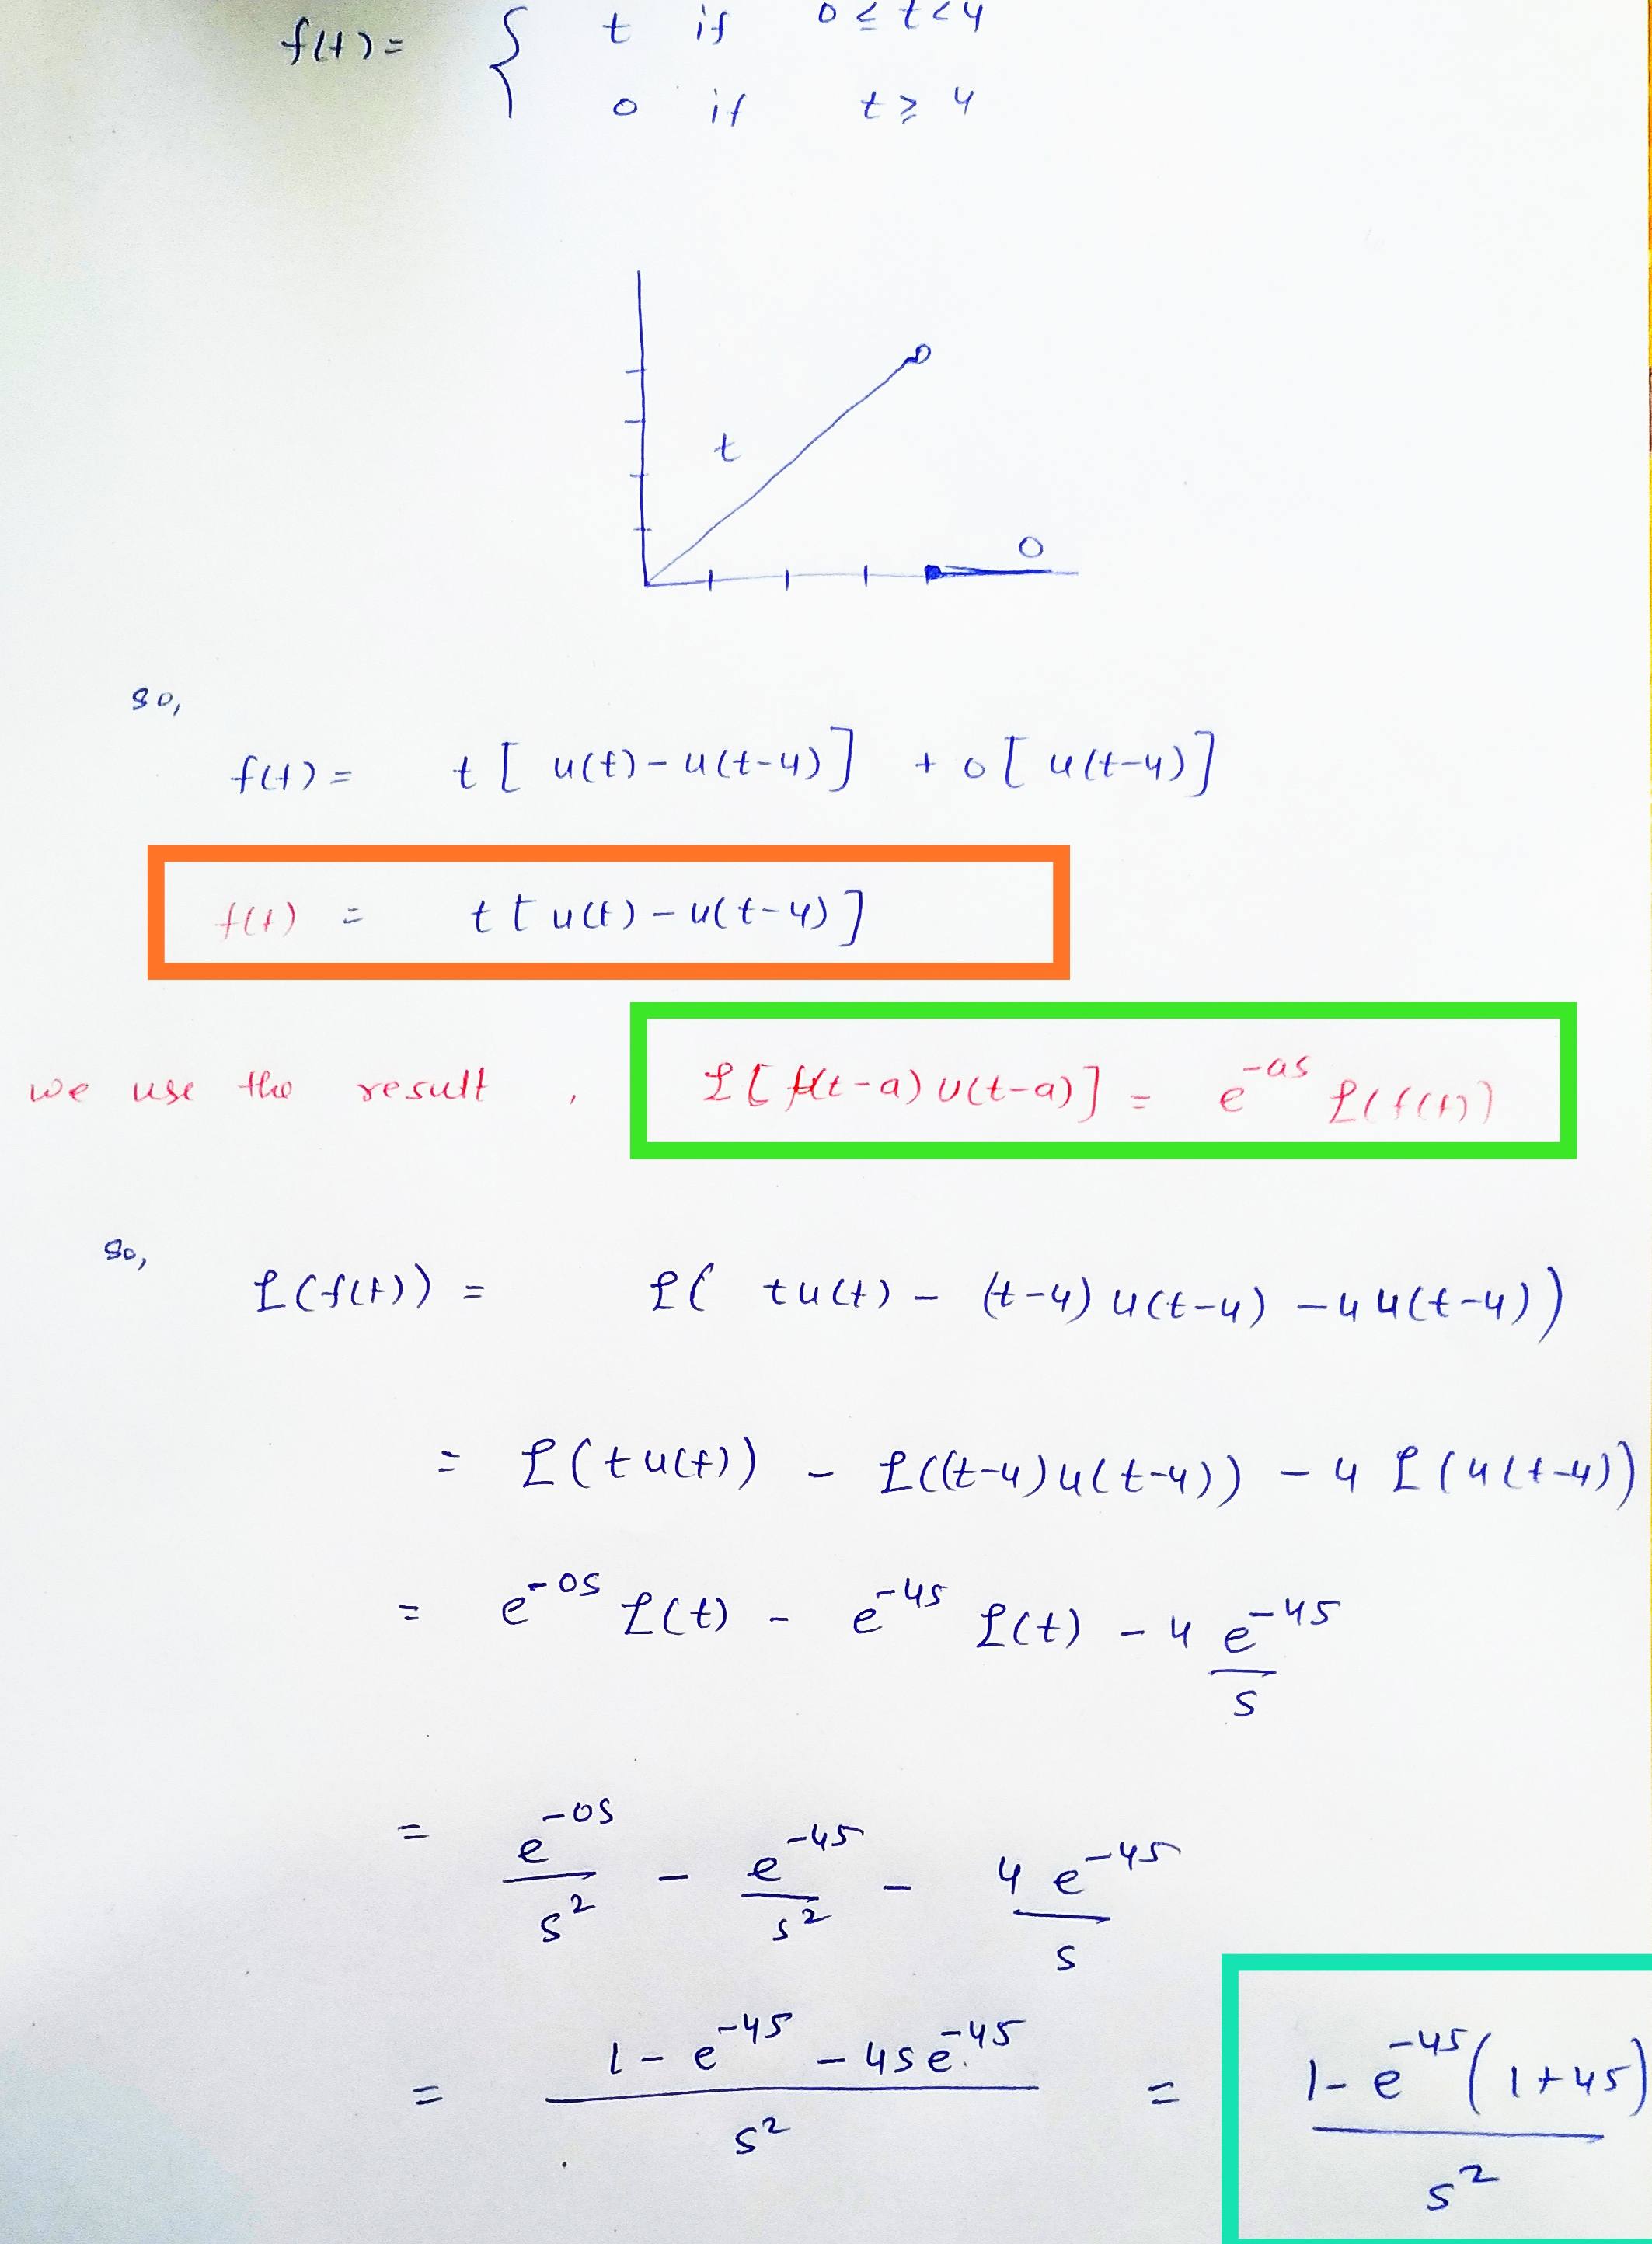 f(t) = { t if 0 ≤ t < 4
0 if t ≥ 4
t
0
so,
f(t) = t [ u(t) - u(t-4) ] + 0 [ u(t-4) ]
f(t) = t [ u(t) - u(t-4) ]
we use the result , £[ f(t-a) u(t-a) ] = e^-as £(f(t))
So,
£(f(t)) = £( tu(t) - (t-4) u(t-4) - 4 u(t-4) )
= £(t u(t)) - £((t-4) u(t-4)) - 4 £(u(t-4))
= e^-0s £(t) - e^-4s £(t) - 4 e^-4s / s
= e^-0s / s² - e^-4s / s² - 4 e^-4s / s
= (1 - e^-4s - 4s e^-4s) / s² = (1 - e^-4s (1+4s)) / s²